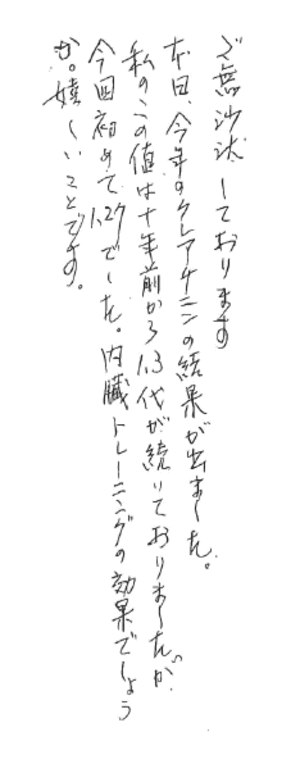 ご無沙汰しております
本日、今年のクレアチニンの結果が出ました。
私のこの値は十年前から1.3代が続いておりましたが、
今回初めて1.27でした。内臓トレーニングの効果でしょう
か。嬉しいことです。